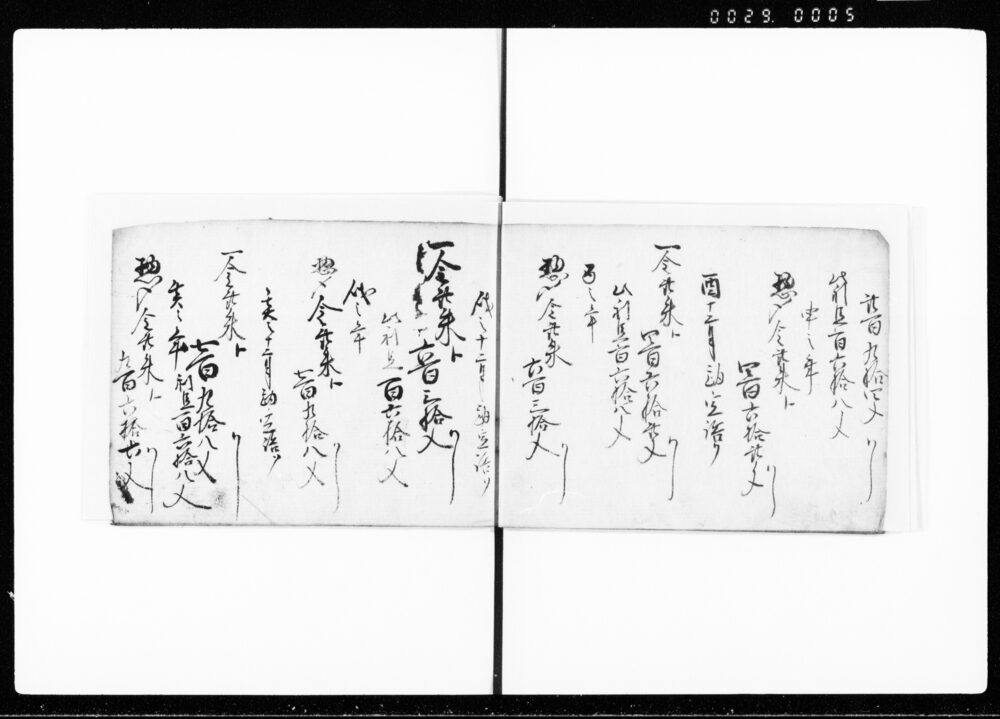 0029. 0005
弐百九拾四文
此利足百六拾八文
申之年
惣〆金弐朱ト
四百六拾弐文
酉十二月勘定済
一金弐朱ト
四百六拾弐文
此利足百六拾八文
酉之年
惣〆金弐朱
六百三拾文
戌之十二月勘定済
一金弐朱ト
六百三拾文
此利足百六拾八文
戌之年
惣〆金弐朱ト
七百九拾八文
亥之十二月勘定済
一金弐朱ト
七百九拾八文
亥之年利足百六拾八文
惣〆金弐朱ト
九百六拾六文